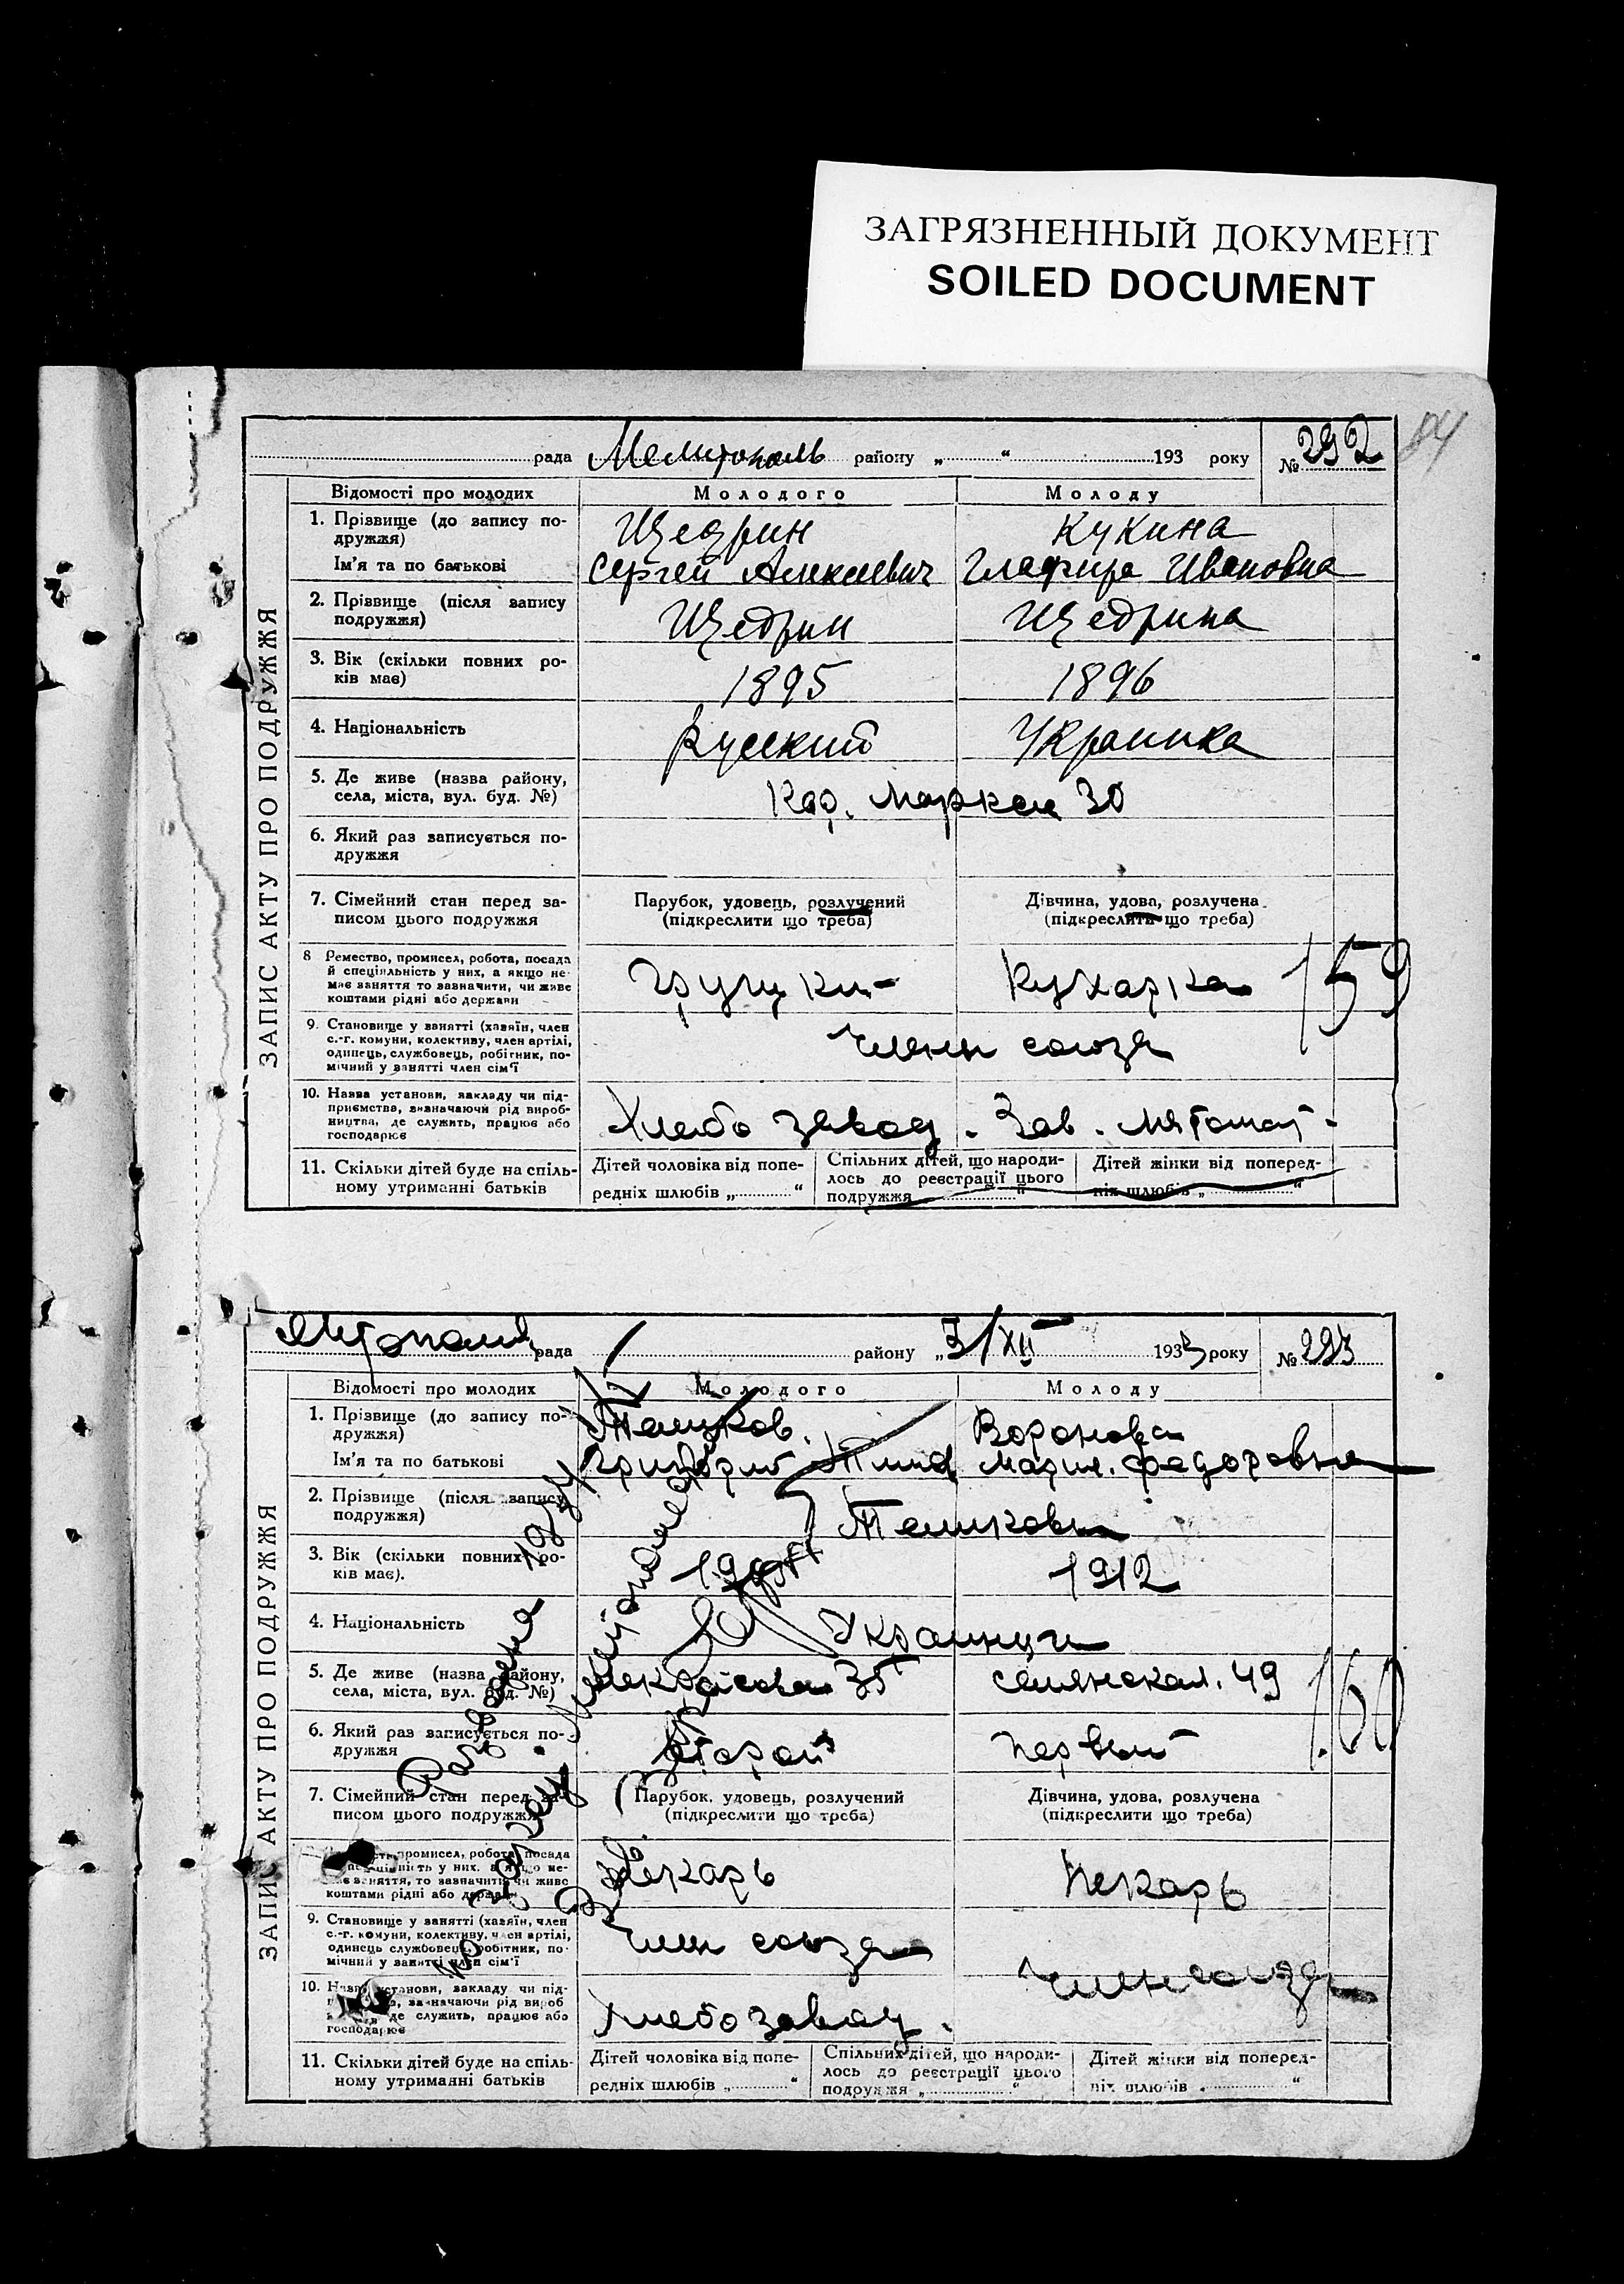 ЗАГРЯЗНЕННЫЙ ДОКУМЕНТ
SOILED DOCUMENT
84
рада Мелитополь району „ “ 193 року № 292
ЗАПИС АКТУ ПРО ПОДРУЖЖЯ
Відомості про молодих Молодого Молоду
1. Прізвище (до запису по-
дружжя) Щедрин Кукина
Ім'я та по батькові Сергей Алексеевич Глафира Ивановна
2. Прізвище (після запису
подружжя) Щедрин Щедрина
3. Вік (скільки повних ро-
ків має) 1895 1896
4. Національність Русский Украинка
5. Де живе (назва району,
села, міста, вул. буд. №) Кар. Маркса 30
6. Який раз записується по-
дружжя
7. Сімейний стан перед за-
писом цього подружжя
Парубок, удовець, розлучений
(підкреслити що треба)
Дівчина, удова, розлучена
(підкреслити що треба)
8 Ремество, промисел, робота, посада
й спеціяльність у них, а якщо не
має заняття то зазначити, чи живе
коштами рідні або держави
Кухарка 159
9. Становище у занятті (хазяїн, член
с.-г. комуни, колективу, член артілі,
одинець, службовець, робітник, по-
мічний у занятті член сім'ї
члены союза
10. Назва установи, закладу чи під-
приємства, визначаючи рід вироб-
ництва, де служить, працює або
господарює
Хлебо завод. Зав.
11. Скільки дітей буде на спіль-
ному утриманні батьків
Дітей чоловіка від попе-
редніх шлюбів „ “
Спільних дітей, що народи-
лось до реєстрації цього
подружжя “
Дітей жінки від поперед-
ніх шлюбів „ “
рада району „31/XII 1933 року № 293
ЗАПИС АКТУ ПРО ПОДРУЖЖЯ
Відомості про молодих Молодого Молоду
1. Прізвище (до запису по-
дружжя) Воронова
Ім'я та по батькові Григорий Мария Федоровна
2. Прізвище (після запису
подружжя)
3. Вік (скільки повних ро-
ків має). 1912
4. Національність Украинцы
5. Де живе (назва району,
села, міста, вул. буд. №) 35 49
160
6. Який раз записується по-
дружжя Второй Первый
7. Сімейний стан перед за-
писом цього подружжя
Парубок, удовець, розлучений
(підкреслити що треба)
Дівчина, удова, розлучена
(підкреслити що треба)
промисел, робота, посада
у них, а якщо не-
має заняття, то зазначити чи живе
коштами рідні або держави
Пекарь Пекарь
9. Становище у занятті (хазяїн, член
с.-г. комуни, колективу, член артілі,
одинець службовець, робітник, по-
мічний у занятті член сім'ї
Член союза Член союза
10. Назва установи, закладу чи під-
зазначаючи рід вироб
де служить, працює або
господарює
Хлебо завод.
11. Скільки дітей буде на спіль-
ному утриманні батьків
Дітей чоловіка від попе-
редніх шлюбів „ “
Спільних дітей, що народи-
лось до реєстрації цього
подружжя „ “
Дітей жінки від поперед-
ніх шлюбів „ “